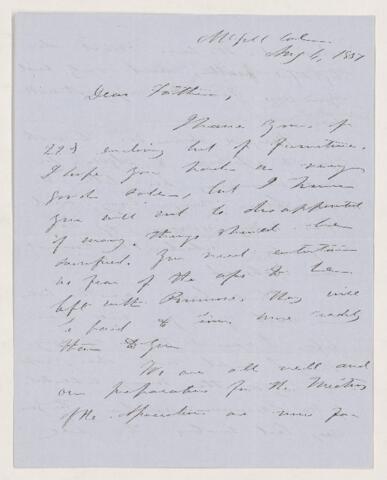 McGill College
Aug 4, 1857
Dear Father,
I have yours of
29th enclosing list of furniture.
I hope you had a very
good sale, but I know
you will not be disappointed
if many things should be
sacrificed. You need entertain
no fear of the
left with Primrose. They will
be paid to him more readily
than to you
We are all well and
our preparations for the Meeting
of the Association are now far